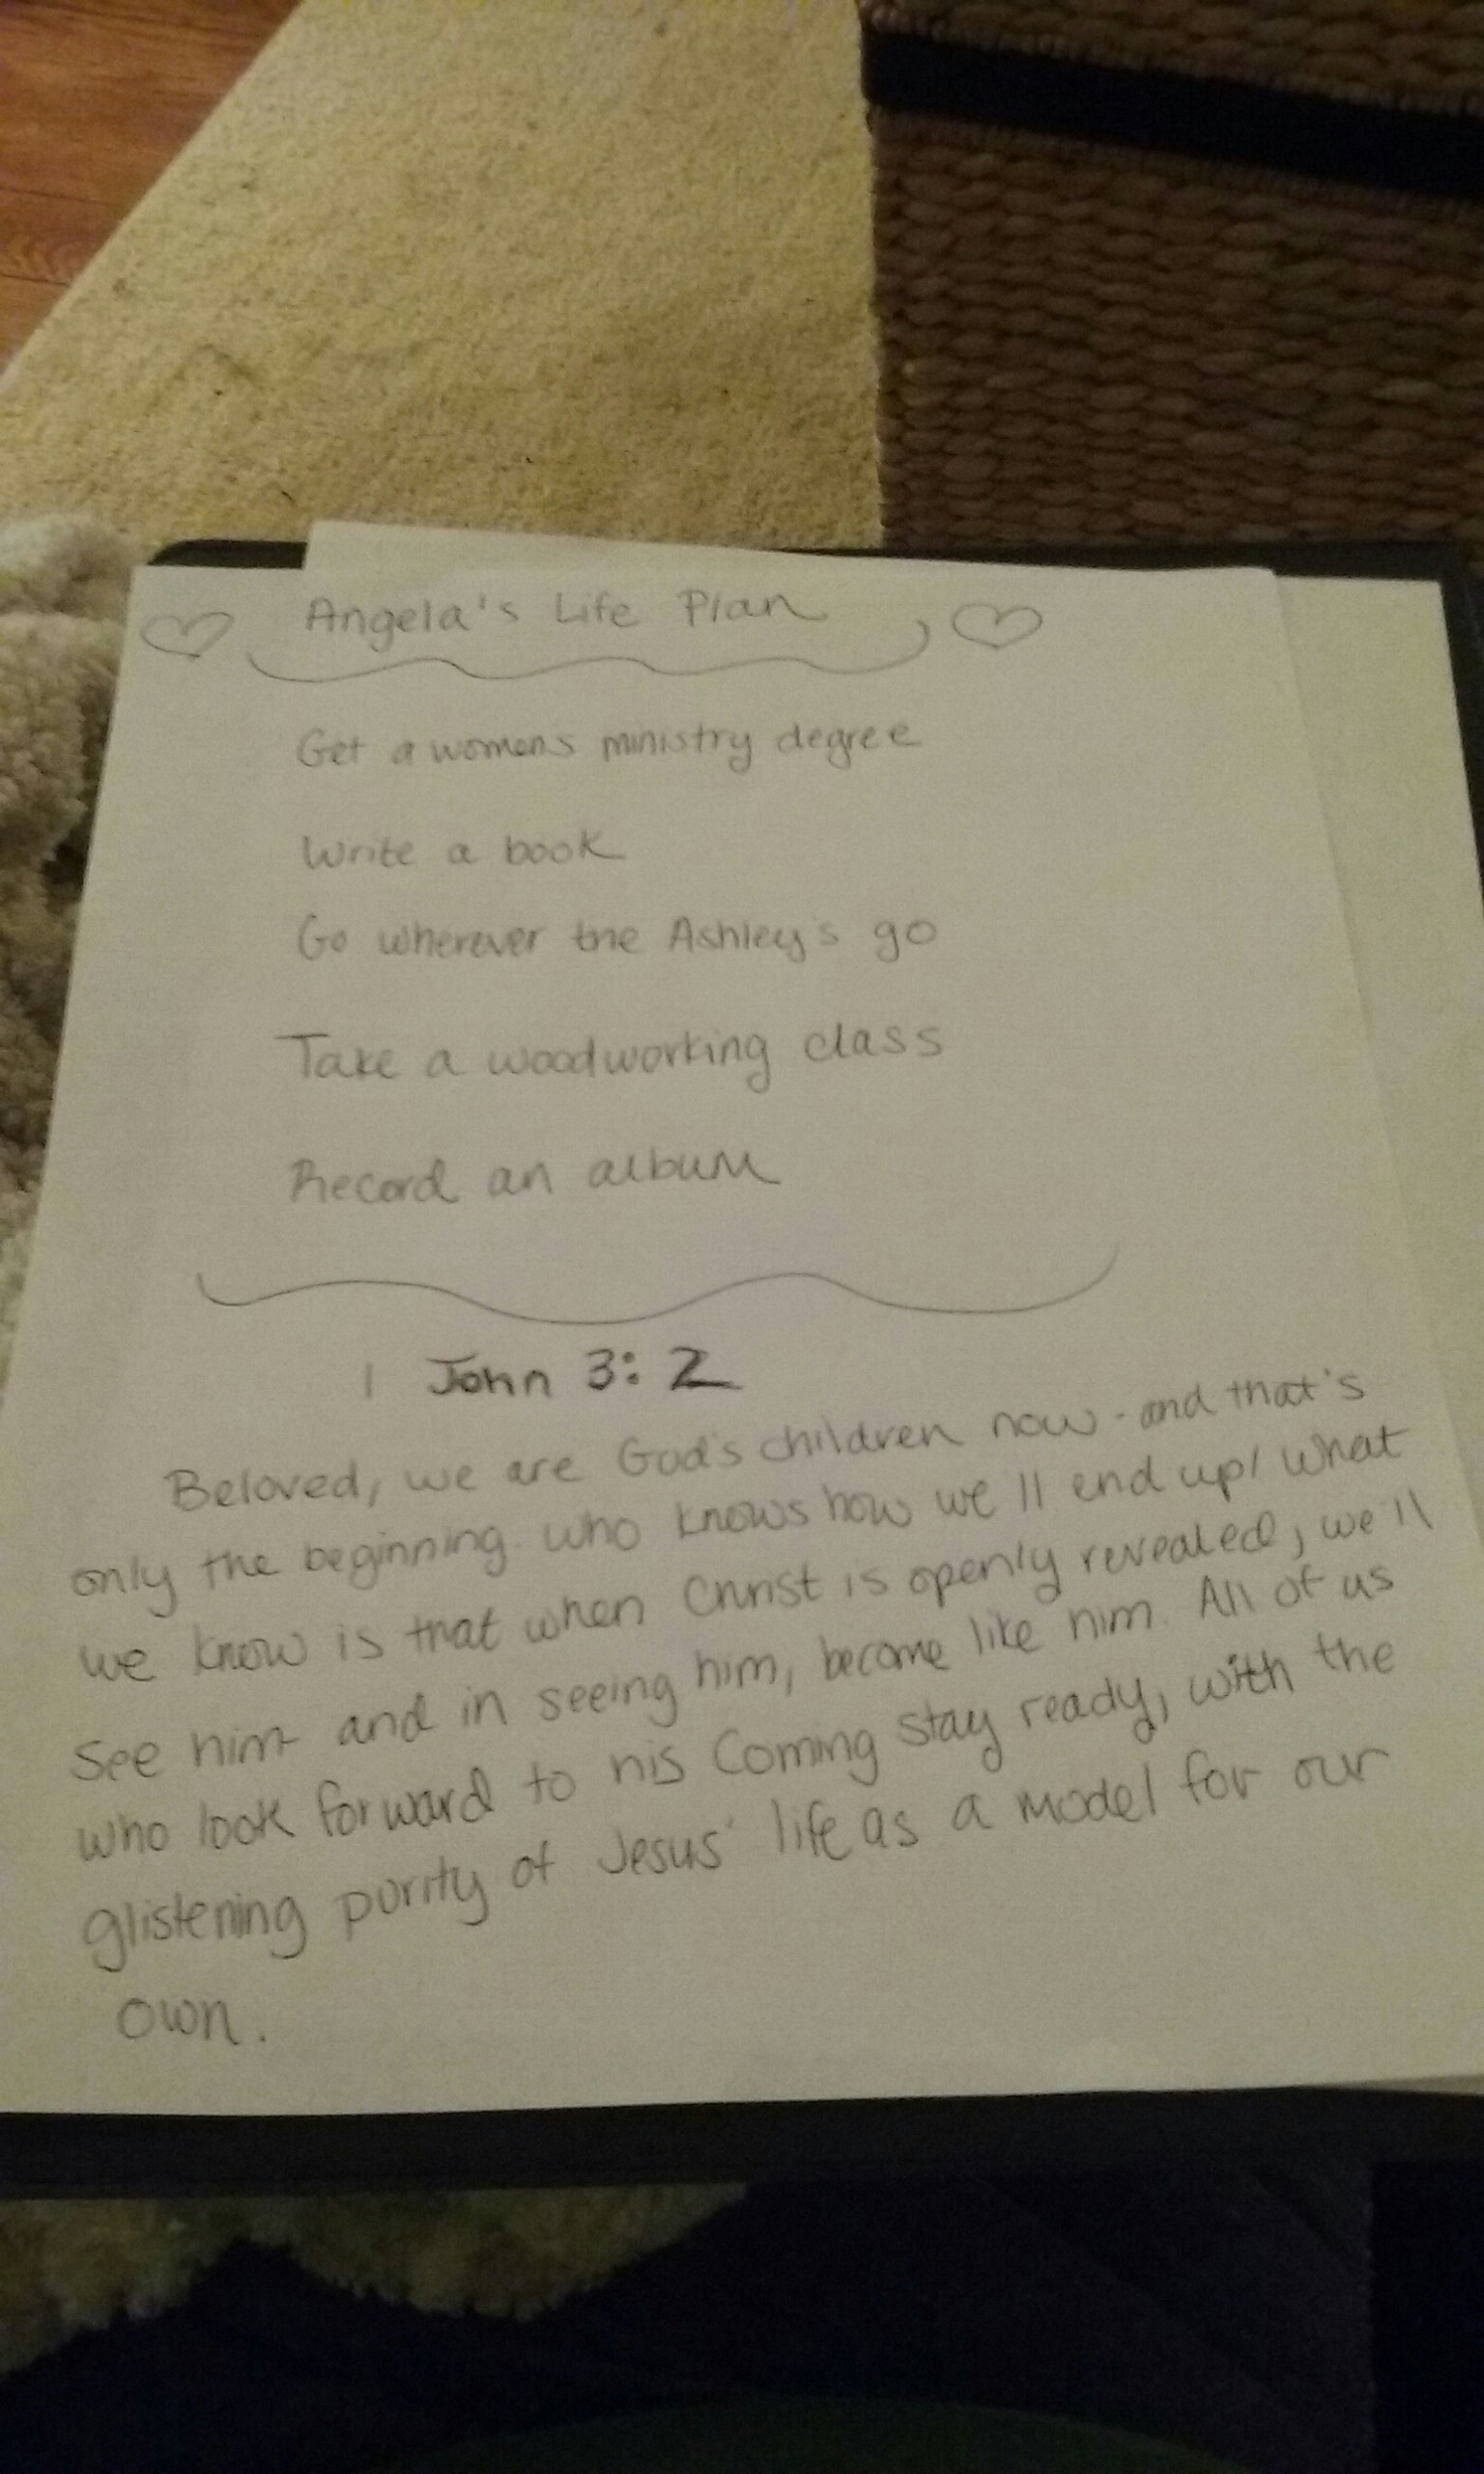 Angela's Life Plan
Get a womens ministry degree
Write a book
Go wherever the Ashley's go
Take a woodworking class
Record an album
1 John 3:2
Beloved, we are God's children now - and that's
only the beginning. who knows how we'll end up! What
we know is that when Christ is openly revealed, we'll
see him - and in seeing him, become like him. All of us
who look forward to his Coming stay ready, with the
glistening purity of Jesus' life as a model for our
own.